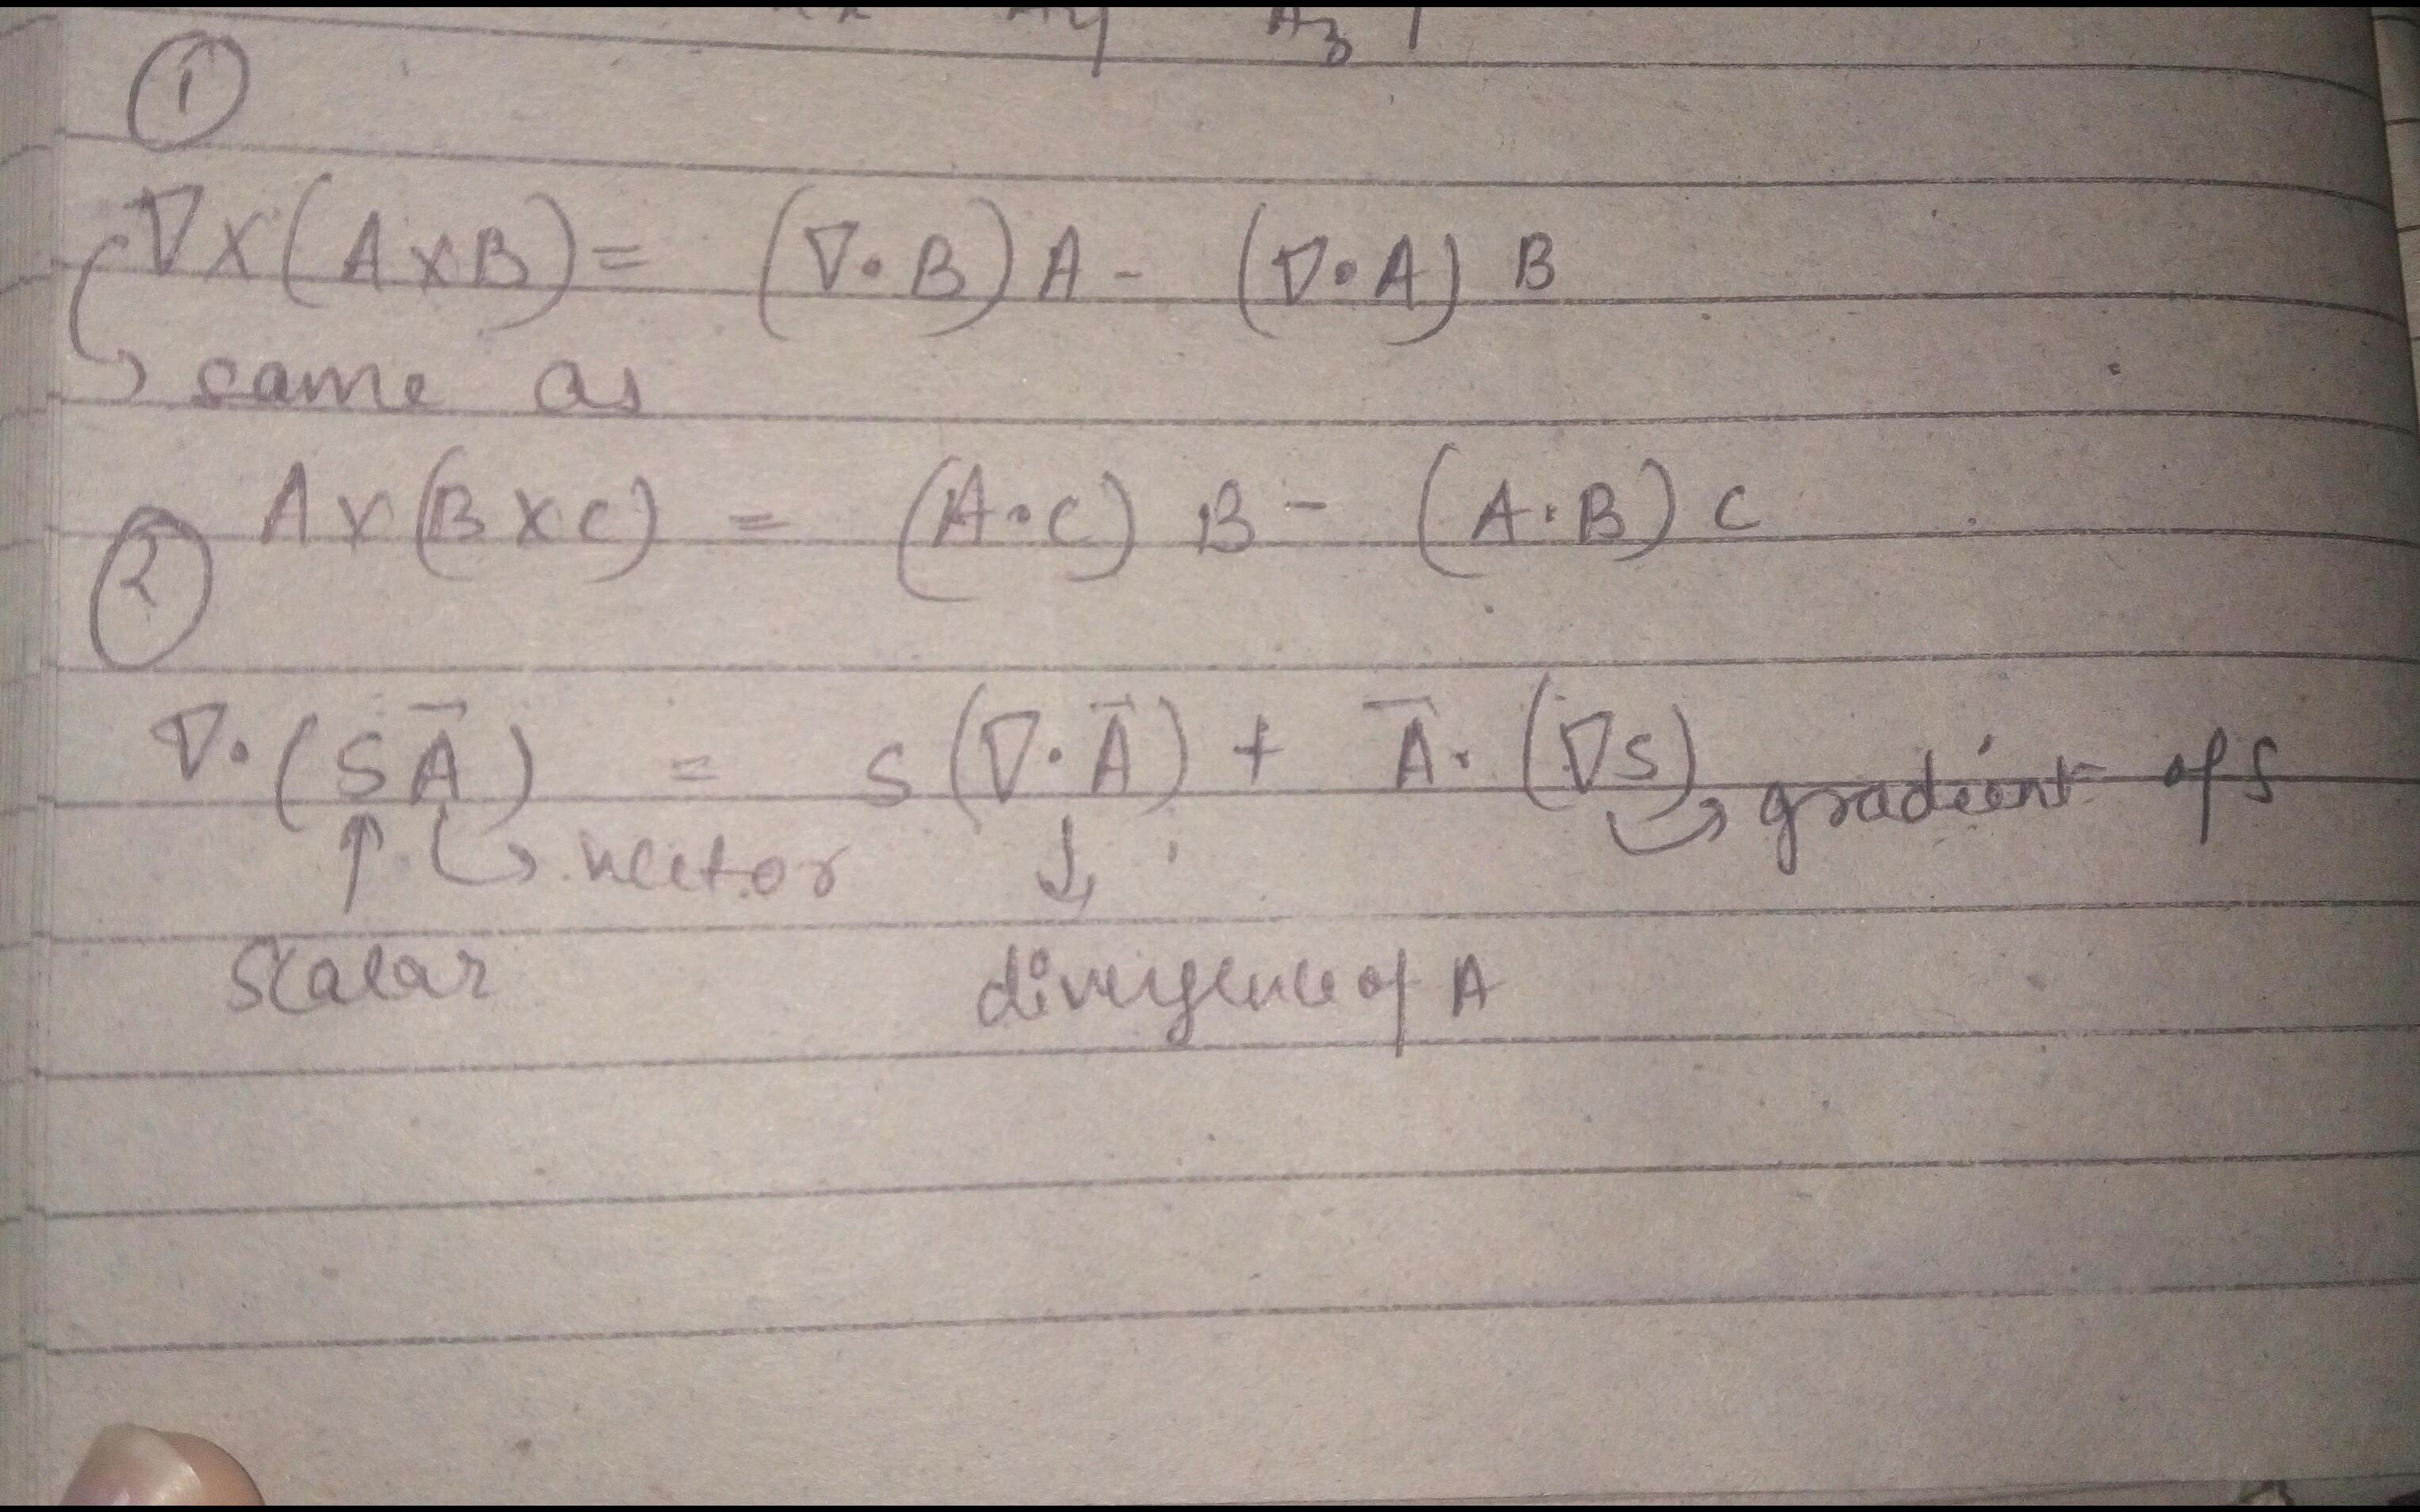 Az
①
∇×(A×B)= (∇·B)A - (∇·A) B
same as
② A×(B×C) = (A·C) B - (A·B) C
∇·(SA⃗) = S(∇·A⃗) + A⃗·(∇S) gradient of S
vector
scalar divergence of A